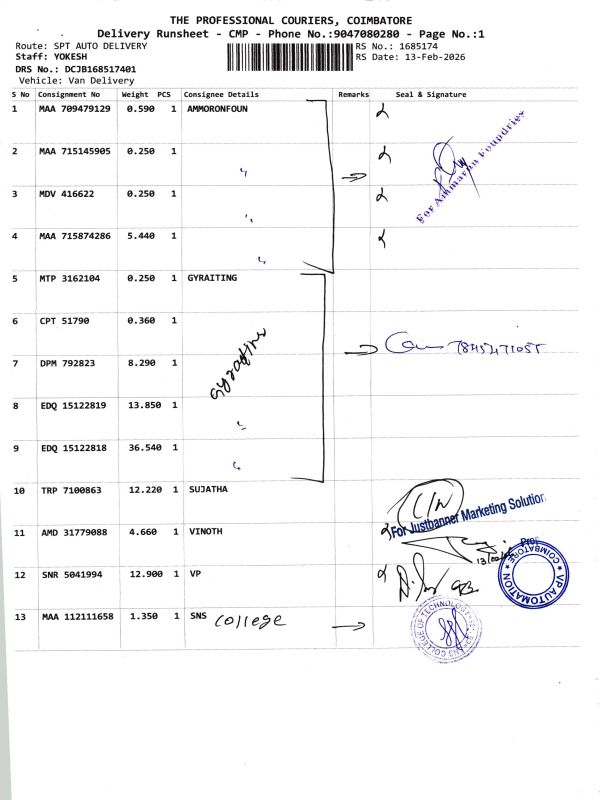 THE PROFESSIONAL COURIERS, COIMBATORE
Delivery Runsheet - CMP - Phone No.:9047080280 - Page No.:1
Route: SPT AUTO DELIVERY RS No.: 1685174
Staff: YOKESH RS Date: 13-Feb-2026
DRS No.: DCJB168517401
Vehicle: Van Delivery
S No Consignment No Weight PCS Consignee Details Remarks Seal & Signature
1 MAA 709479129 0.590 1 AMMORONFOUN
2 MAA 715145905 0.250 1
For Ammarun Foundries
3 MDV 416622 0.250 1
4 MAA 715874286 5.440 1
5 MTP 3162104 0.250 1 GYRAITING
6 CPT 51790 0.360 1
7 DPM 792823 8.290 1
8 EDQ 15122819 13.850 1
9 EDQ 15122818 36.540 1
10 TRP 7100863 12.220 1 SUJATHA
For Justbanner Marketing Solution
11 AMD 31779088 4.660 1 VINOTH
12 SNR 5041994 12.900 1 VP
VP AUTOMATION COIMBATORE
13 MAA 112111658 1.350 1 SNS College
SNS COLLEGE OF TECHNOLOGY